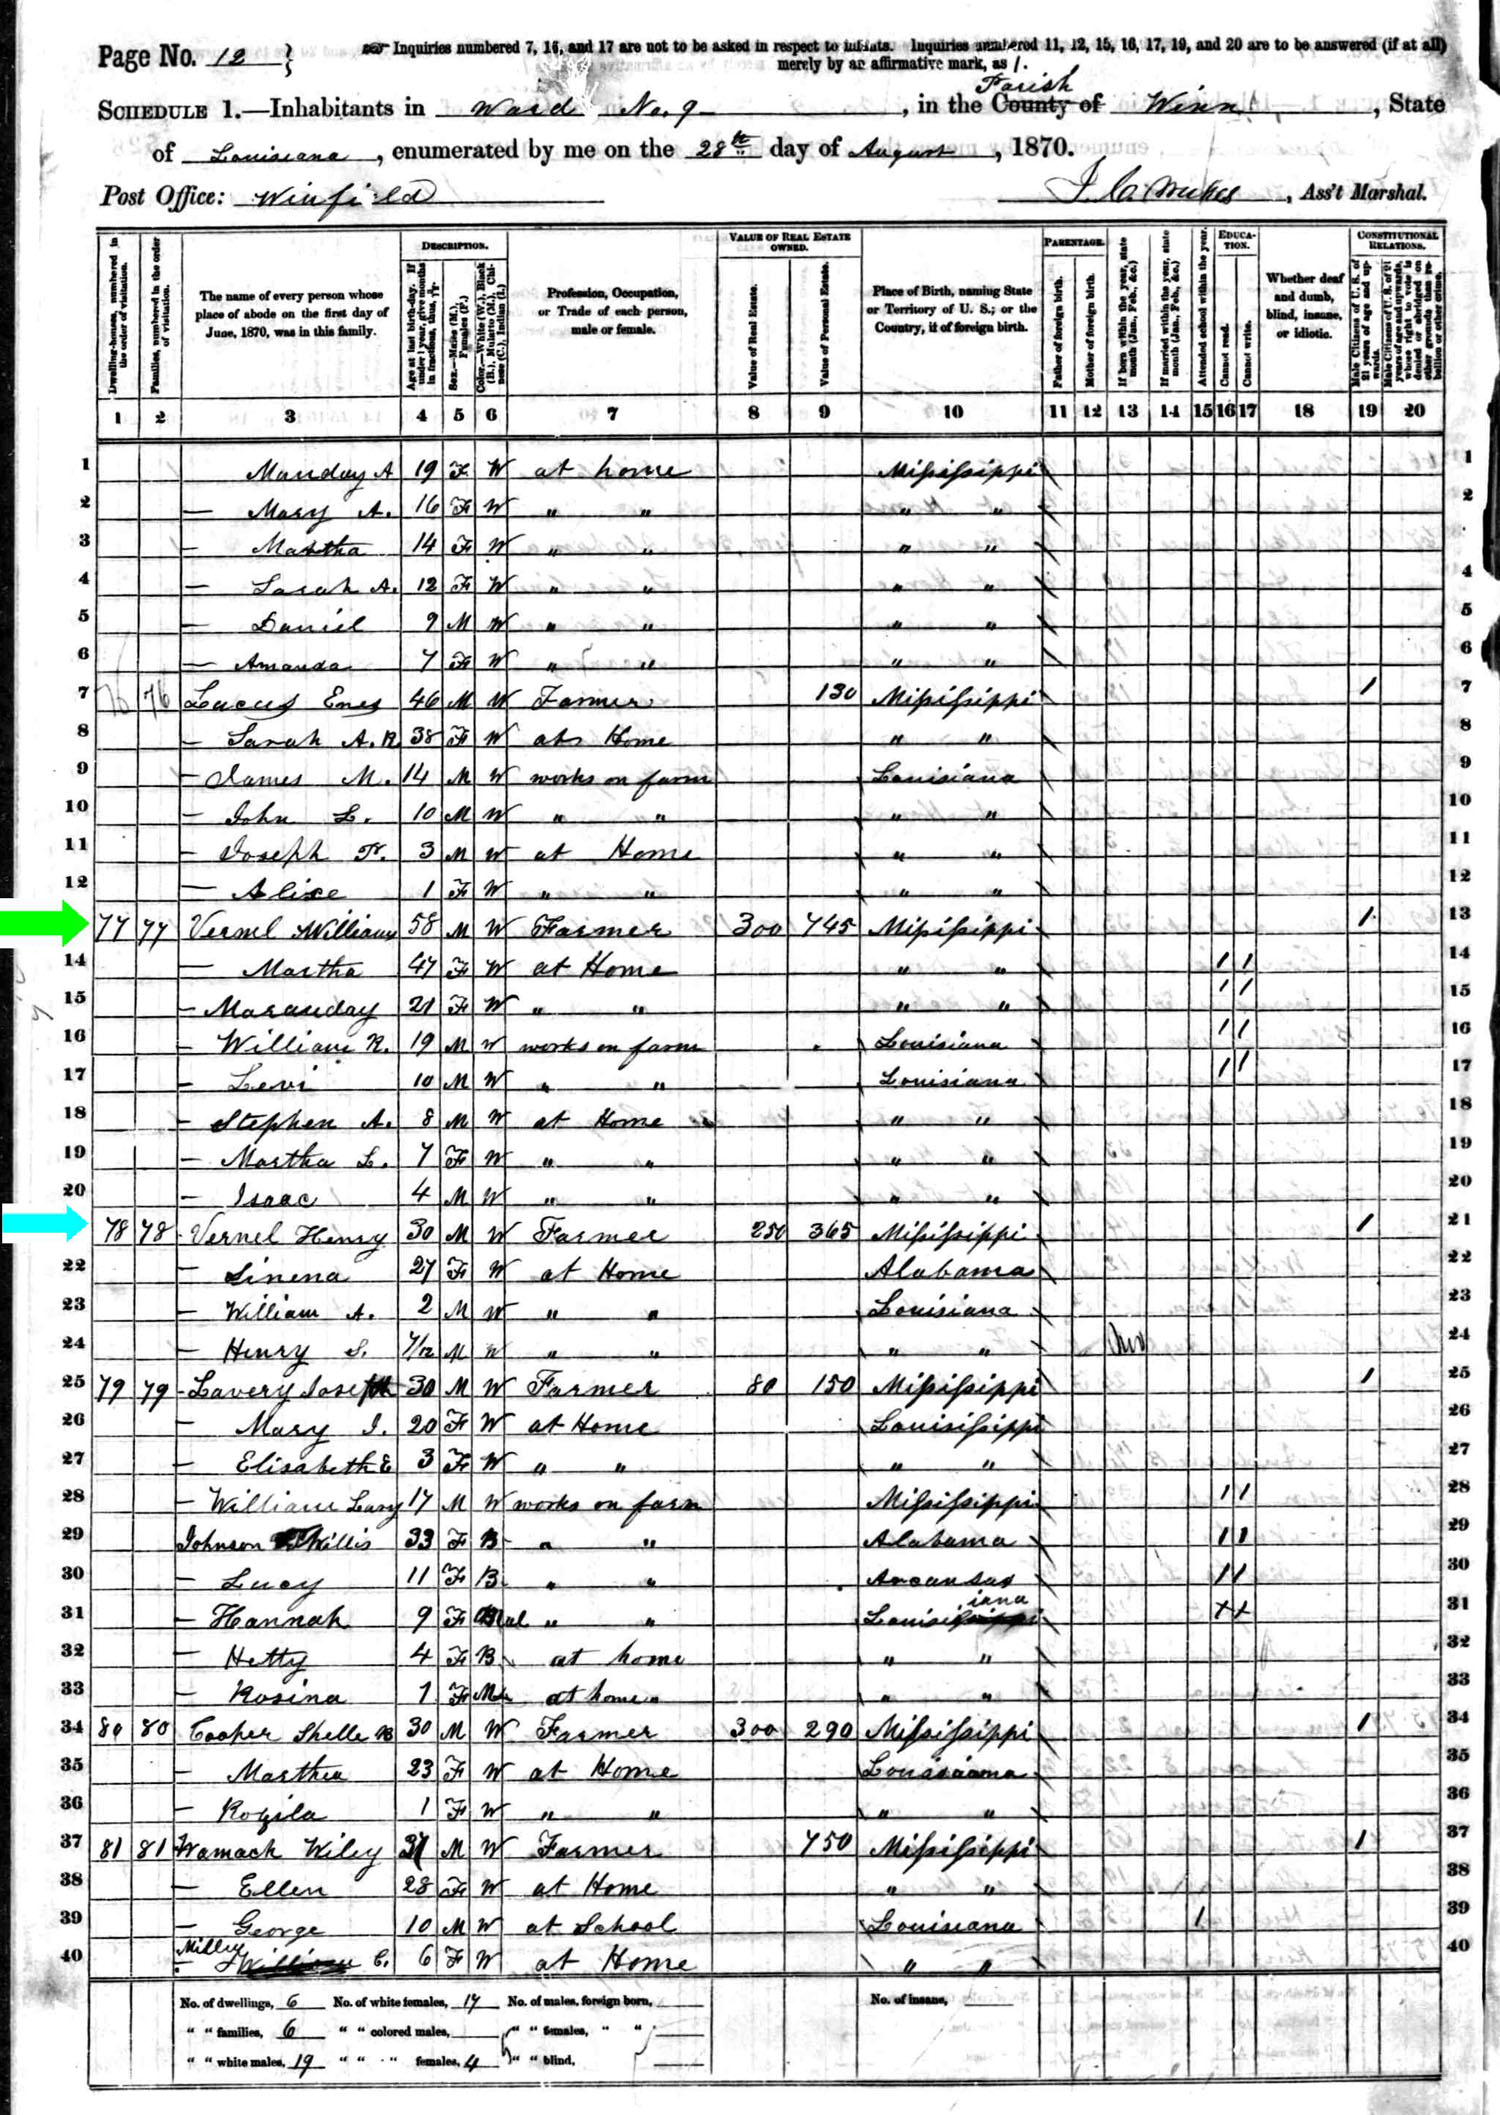 Page No. 12
Inquiries numbered 7, 16, and 17 are not to be asked in respect to infants. Inquiries numbered 11, 12, 15, 16, 17, 19, and 20 are to be answered (if at all)
merely by an affirmative mark, as /.
Parish
SCHEDULE 1.—Inhabitants in Ward No. 9, in the County of Winn, State
of Louisiana, enumerated by me on the 28th day of August, 1870.
Post Office: Winfield , Ass't Marshal.
Dwelling-houses, numbered in the order of visitation.
Families, numbered in the order of visitation.
The name of every person whose place of abode on the first day of June, 1870, was in this family.
DESCRIPTION.
Age at last birth-day. If under 1 year, give months in fractions, thus, 3/12
Sex.—Males (M.), Females (F.)
Color.—White (W.), Black (B.), Mulatto (M.), Chinese (C.), Indian (I.)
Profession, Occupation, or Trade of each person, male or female.
VALUE OF REAL ESTATE OWNED.
Value of Real Estate.
Value of Personal Estate.
Place of Birth, naming State or Territory of U. S.; or the Country, if of foreign birth.
PARENTAGE.
Father of foreign birth.
Mother of foreign birth.
If born within the year, state month (Jan., Feb., &c.)
If married within the year, state month (Jan., Feb., &c.)
Attended school within the year.
EDUCATION.
Cannot read.
Cannot write.
Whether deaf and dumb, blind, insane, or idiotic.
CONSTITUTIONAL RELATIONS.
Male Citizens of U. S. of 21 years of age and upwards.
Male Citizens of U. S. of 21 years of age and upwards, whose right to vote is denied or abridged on other grounds than rebellion or other crime.
1 2 3 4 5 6 7 8 9 10 11 12 13 14 15 16 17 18 19 20
1 Manday A 19 F W at home Mississippi 1
2 — Mary A. 16 F W " " " " 2
3 — Martha 14 F W " " " " 3
4 — Sarah A. 12 F W " " " " 4
5 — Daniel 9 M W " " " " 5
6 — Amanda 7 F W " " " " 6
7 76 76 Lucus Enes 46 M W Farmer 130 Mississippi / 7
8 — Sarah A. R 38 F W at Home " " 8
9 — James M. 14 M W works on farm Louisiana 9
10 — John L. 10 M W " " " " 10
11 — Joseph 3 M W at Home " " 11
12 — Alice 1 F W " " " " 12
13 77 77 Vernel William 58 M W Farmer 300 745 Mississippi / 13
14 — Martha 47 F W at Home " " / / 14
15 — Maranday 21 F W " " " " / / 15
16 — William R. 19 M W works on farm Louisiana / / 16
17 — Levi 10 M W " " Louisiana / / 17
18 — Stephen A. 8 M W at Home " " 18
19 — Martha L. 7 F W " " " " 19
20 — Isaac 4 M W " " " " 20
21 78 78 Vernel Henry 30 M W Farmer 250 365 Mississippi / 21
22 — Sinena 27 F W at Home Alabama 22
23 — William A. 2 M W " " Louisiana 23
24 — Henry S. 7/12 M W " " " " 24
25 79 79 Lavery Joseph 30 M W Farmer 80 150 Mississippi / 25
26 — Mary J. 20 F W at Home Louisissippi 26
27 — Elisabeth E 3 F W " " " " 27
28 — William 17 M W works on farm Mississippi / / 28
29 Johnson Willis 33 F B " " Alabama / / 29
30 — Lucy 11 F B " " Arcansas / / 30
31 — Hannah 9 F Mul " " Louisiana + + 31
32 — Hetty 4 F B at home " " 32
33 — Rosina 1 F at home " " 33
34 80 80 Cooper Shelle 30 M W Farmer 300 290 Mississippi / 34
35 — Martha 23 F W at Home Louisiana 35
36 — Rozila 1 F W " " " " 36
37 81 81 Wamack Wiley M W Farmer 750 Mississippi / 37
38 — Ellen 28 F W at Home " " 38
39 — George 10 M W at School Louisiana / 39
40 — Millie C. 6 F W at Home " " 40
No. of dwellings, 6 No. of white females, 17 No. of males, foreign born, No. of insane,
" " families, 6 " " colored males, " " females, " "
" " white males, 19 " " " females, 4 " " blind,